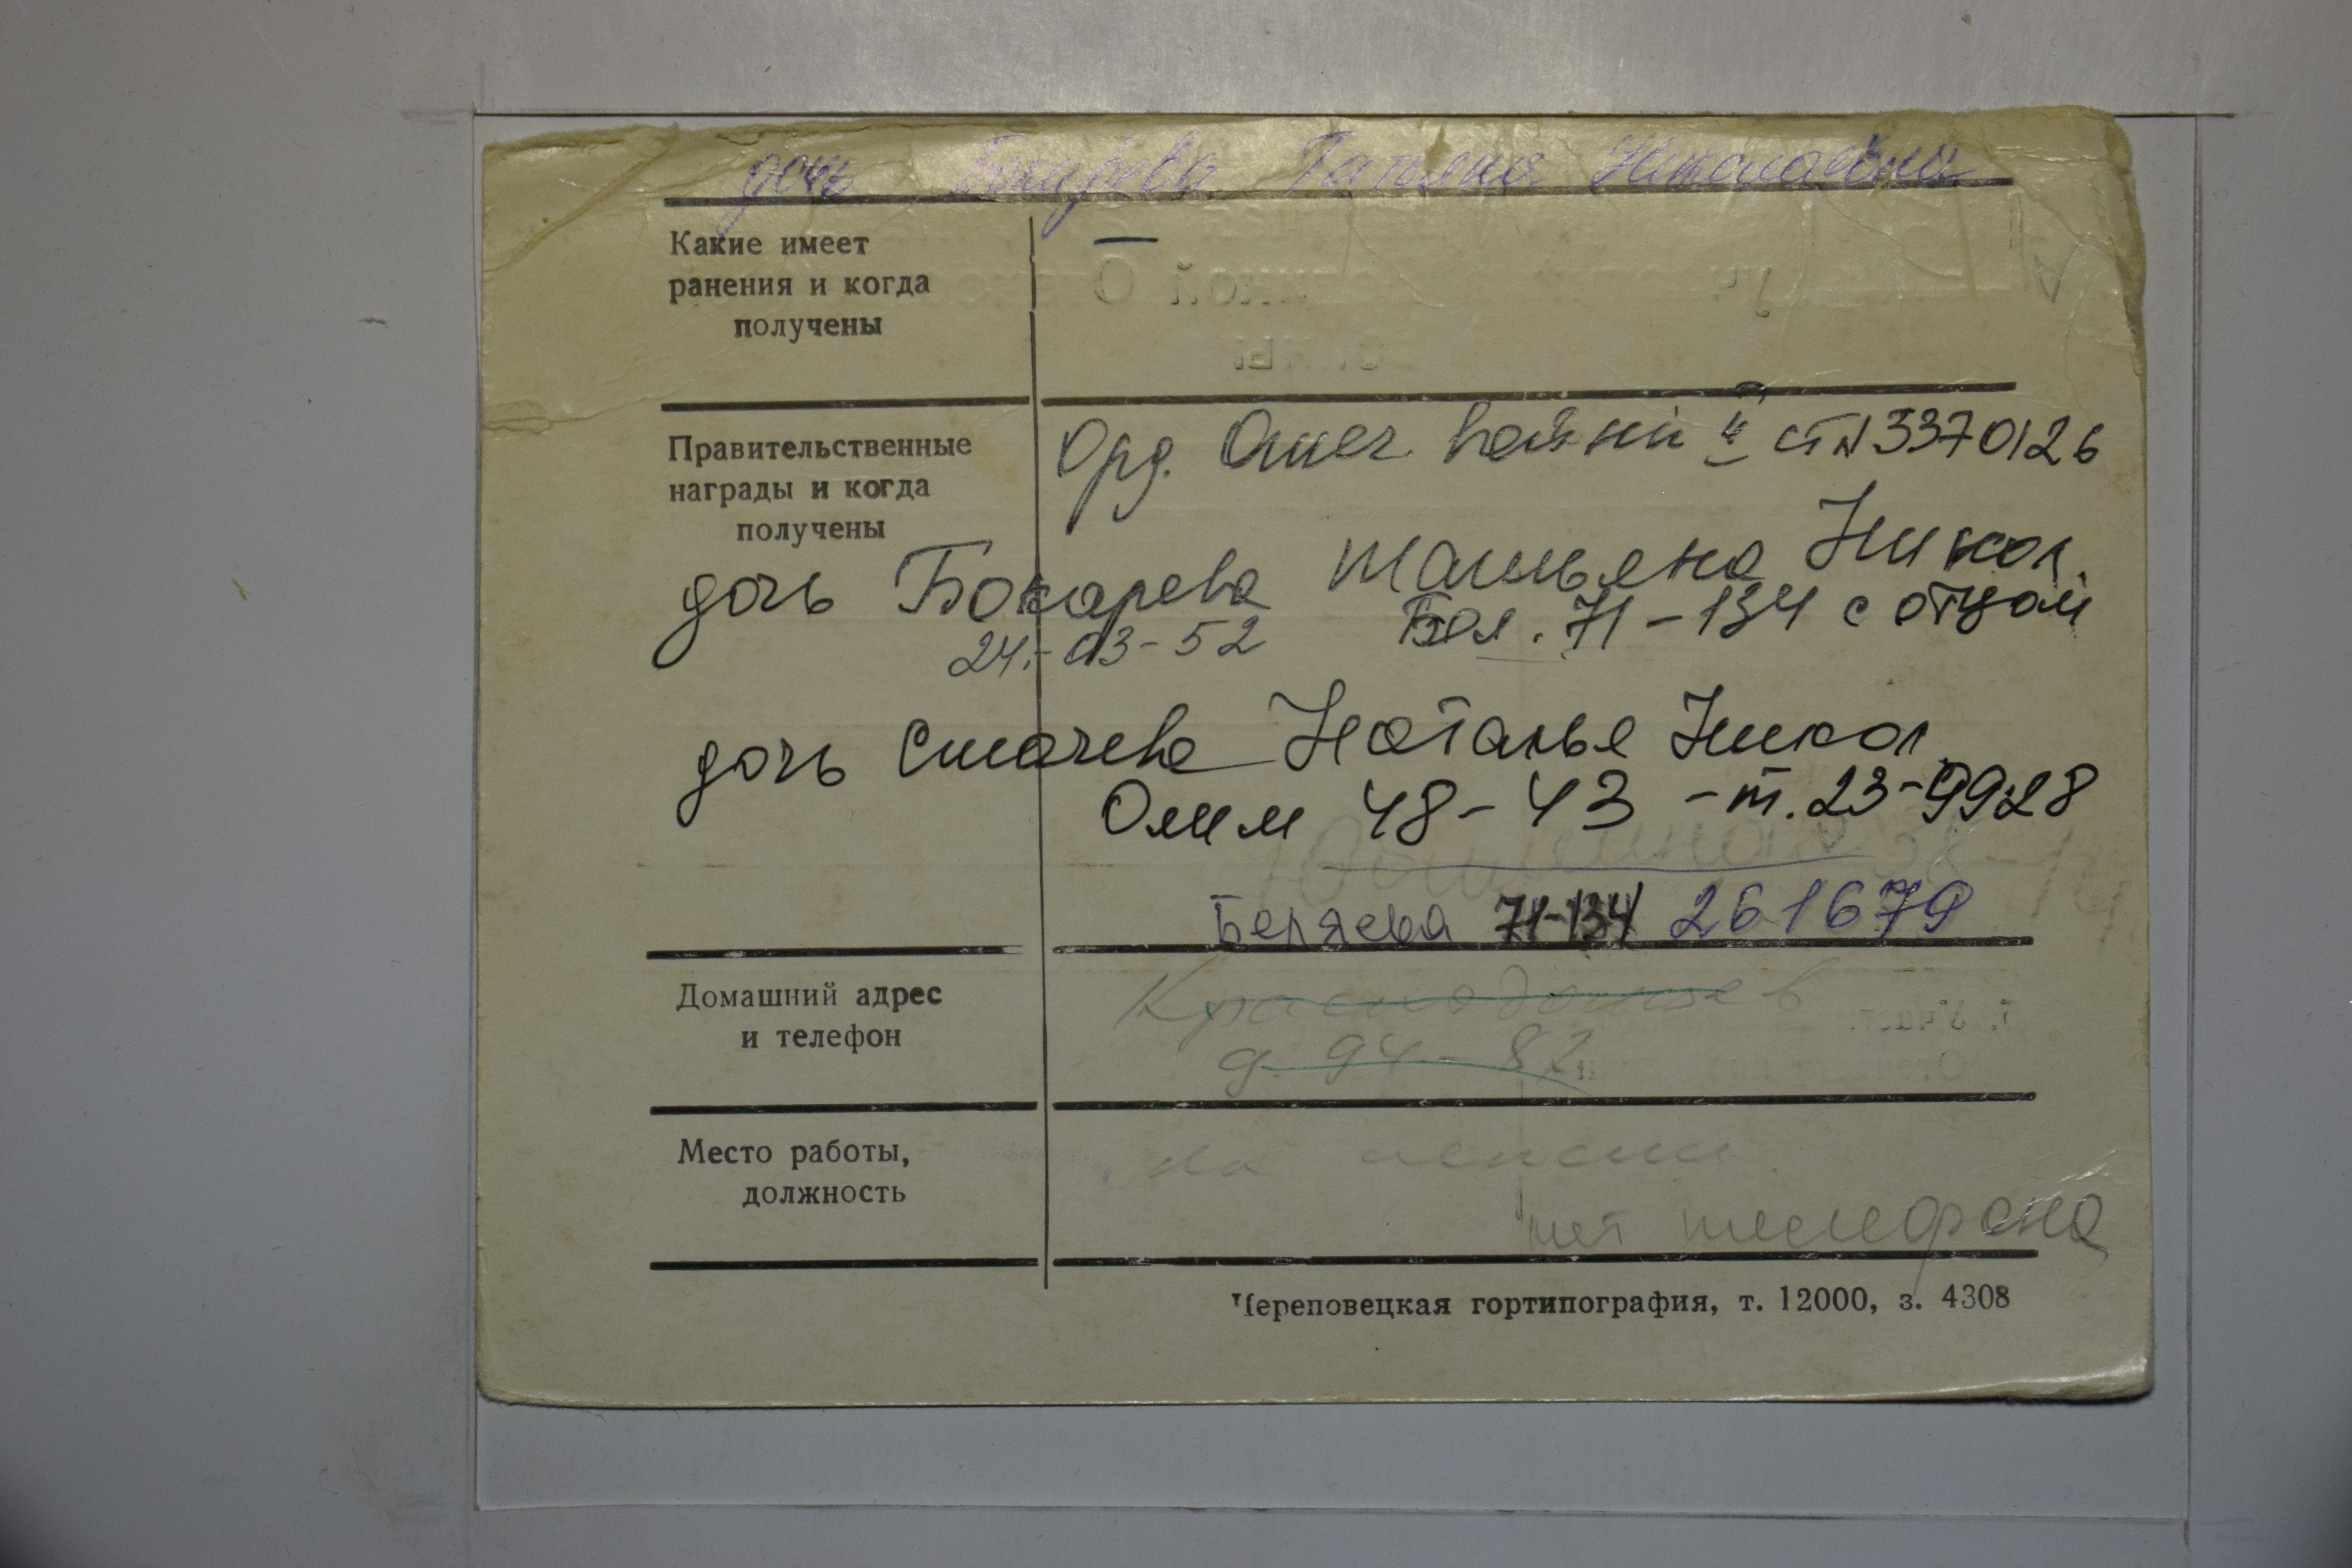 дочь Бокарева Татьяна Николаевна
Какие имеет
ранения и когда
получены
—
Правительственные
награды и когда
получены
Орд. Отеч. войны II ст N 3370126
дочь Бокарева Татьяна Никол.
24.-03-52 Бел. 71-134 с отцом
дочь Смочева Наталья Никол
Олим 48-43 -т. 23-99-28
Беляева 71-134 261679
Домашний адрес
и телефон
Краснодонцев
д. 94-82
Место работы,
должность
на пенсии.
нет телефона
Череповецкая гортипография, т. 12000, з. 4308